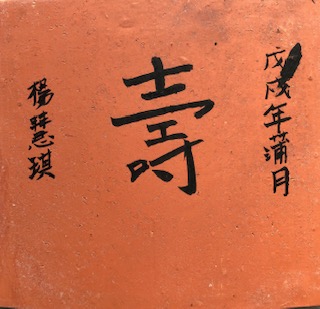 戊戌年蒲月
壽
楊慧琪